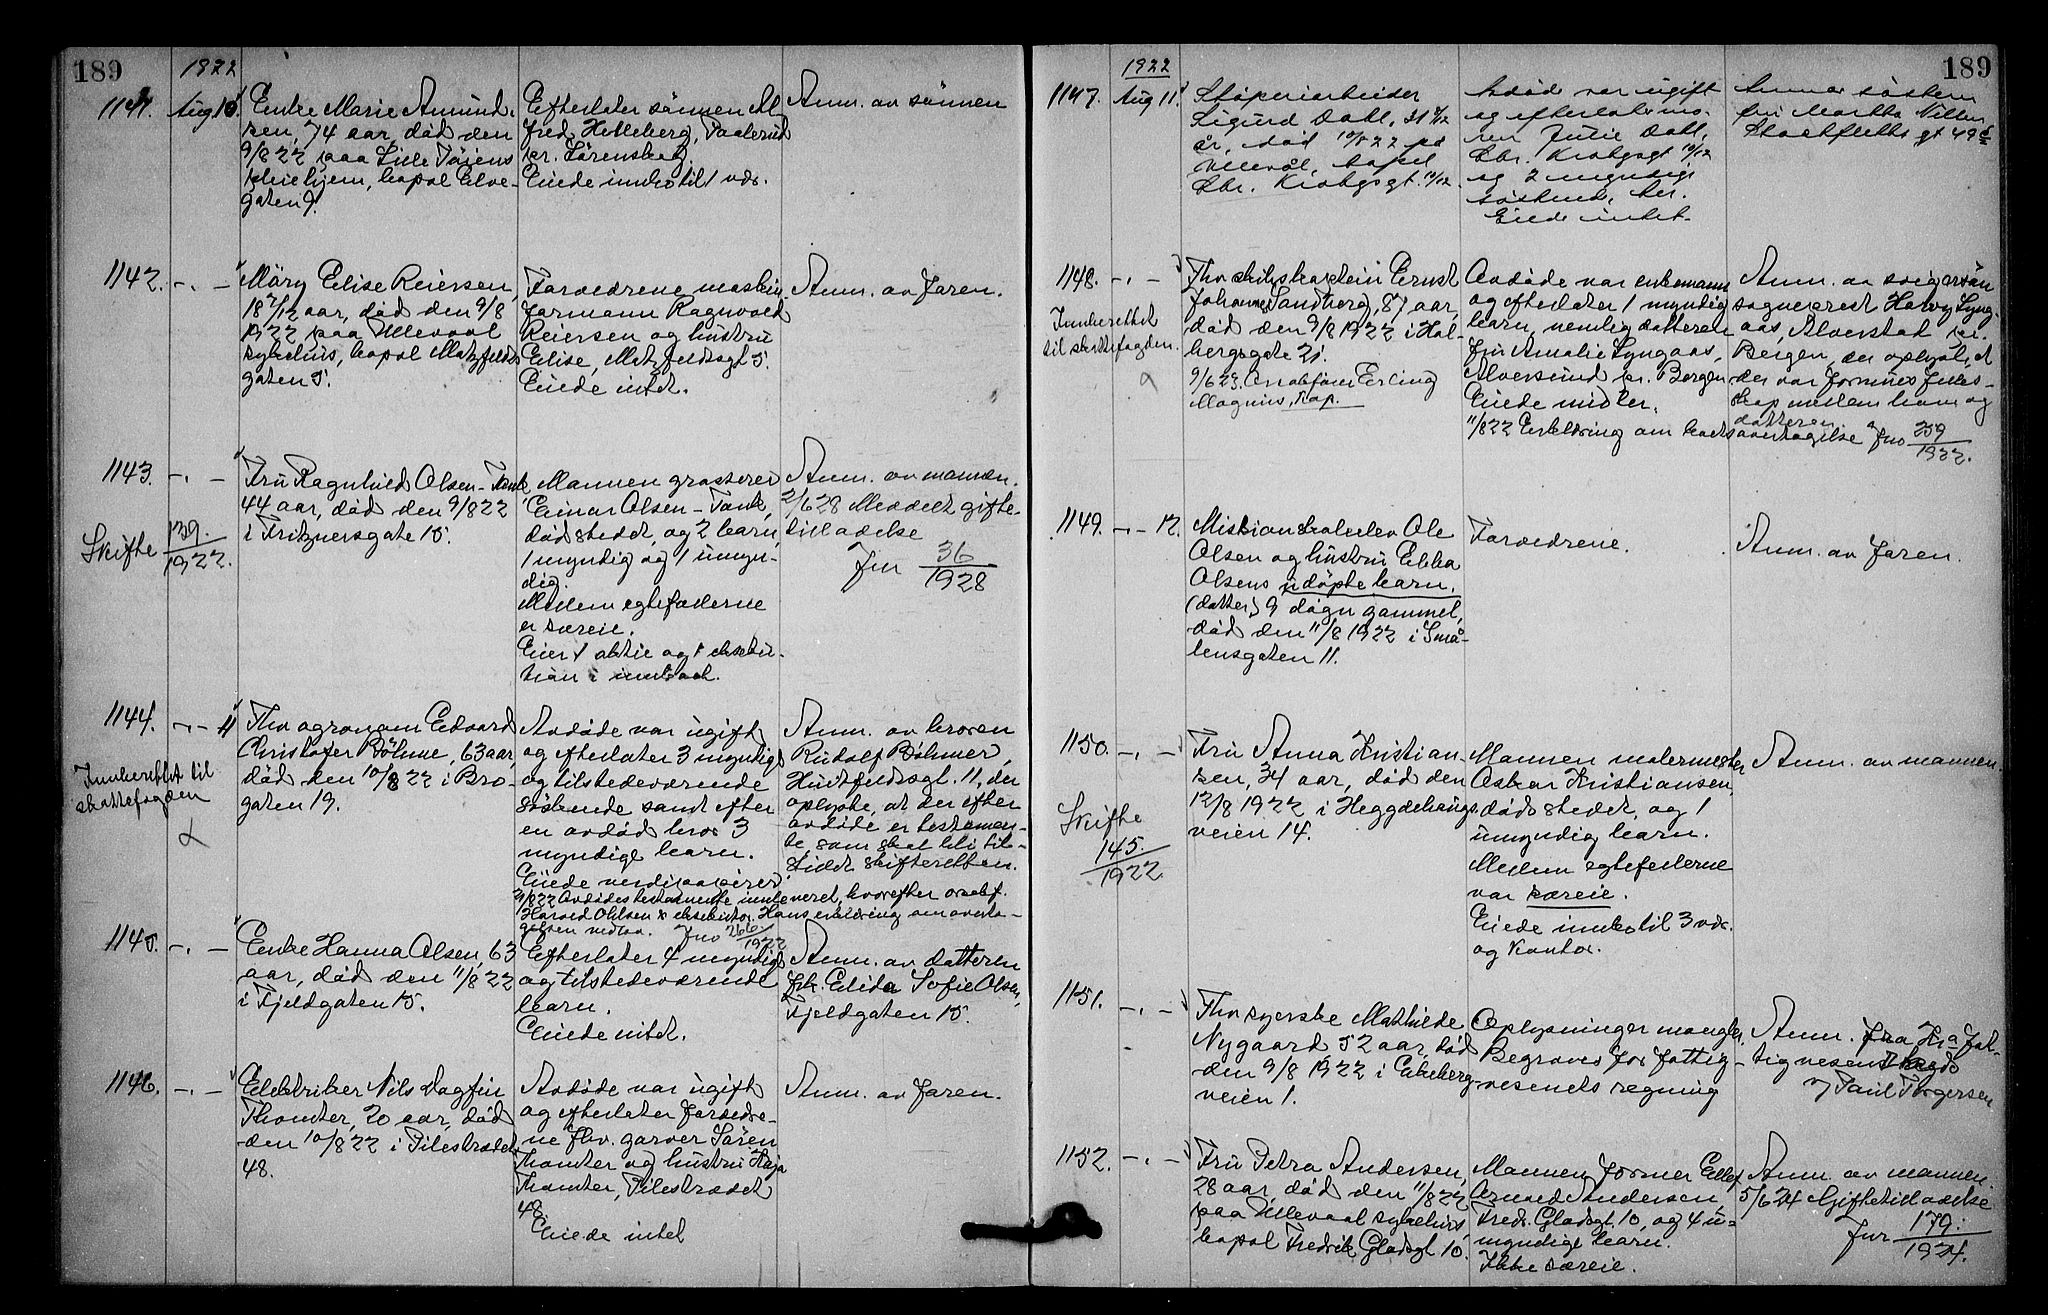 189
1922
1141.
Aug 10.
Enke Marie Amund-
sen, 74 aar, död den
9/8 22 paa Lille Töiens
pleiehjem, bopæl Elve-
gaten 9.
Efterlater sönnen Al-
fred Holleberg,
pr. Sörensby.
Eiede innbo til 1 vær.
Anm. av sönnen
1142. -.-
Mary Elise Reiersen,
18 aar, död den 9/8
1922 paa Ullevaal
sykehus, bopæl Motzfeldts
gaten 5.
Foreldrene maskin-
formann Ragnvald
Reiersen og hustru
Elise, Motzfeldtsgt 5.
Eiede intet.
Anm. av faren.
1143. -.-
Skifte 139.
1922.
Fru Ragnhild Olsen-Tank
44 aar, död den 9/8 22
i Fritznersgate 15.
Mannen grosserer
Einar Olsen-Tank,
dödstedet, og 2 barn,
1 myndig og 1 umyn-
dig.
Mellem egtefællerne
er særeie.
Eier 1 aktie og
i
Anm. av mannen.
2/6 28 Meddelt gifte-
tilladelse
Jnr 36
1928
1144. -.- 11
Innberettet til
skattefogden
Fhv agronom Edvard
Christofer Böhme, 63 aar,
död den 10/8 22 i Bro-
gaten 19.
Avdöde var ugift
og efterlater 3 myndige
og tilstedeværende
söskende samt efter
en avdöd bror 3
myndige barn.
Eiede verdipapirer
Anm. av broren
Rudolf Böhmer,
Huitfeldtsgt. 11, der
oplyste, at der efter
avdöde er testamen-
te, som skal bli til-
stillet skifteretten.
Avdödes testamente innleveret, hvorefter
Harald Ohlsen er eksekutor. Hans erklæring om overta-
gelsen vedlaa. Jnr 266/1922
1145. -.-
Enke Hanna Olsen, 63
aar, död den 11/8 22
i Fjeldgaten 15.
Efterlater 4 myndige
og tilstedeværende
barn.
Eiede intet.
Anm. av datteren
frk. Elida Sofie Olsen,
Fjeldgaten 15.
1146. -.-
Elektriker Nils Dagfin
Thomter, 20 aar, död
den 10/8 22 i Pilestrædet
48.
Avdöde var ugift
og efterlater foreldre-
ne fhv. garver Sören
Thomter og hustru Maja
Thomter, Pilestrædet
48.
Eiede intet
Anm. av faren.
189
1922
1147. Aug 11.
Stöperiarbeider
Sigurd Dahl, 21
år, död 10/8 22 på
Ullevål, bopæl
Chr. Krohgsgt.
Avdöde var ugift
og efterlater mo-
ren Julie Dahl,
Chr. Krohgsgt
og 2 myndige
söskende, her.
Eiede intet.
Anm. av söstem
fru Martha Nilsen,
Stockfleths gt 49
1148. -.-
Innberettet
til skattefogden.
Fhv skibskaptein Ernst
Johannes Sandberg, 87 aar,
död den 9/8 1922 i Hol-
bergsgate 21.
9/6 23. Erling
Magnus, kap.
Avdöde var enkemann
og efterlater 1 myndig
barn, nemlig datteren
fru Amalie Lyngaas,
Alversund pr. Bergen
Eiede midler.
Anm. av svigersön
sogneprest Harry Lyng-
aas, Alverstad pr.
Bergen, der oplyste, at
der var formues fælles-
skap mellem ham og
datteren
11/8 22 Erklæring om boets overtagelse Jnr 259
1922.
1149. -.- 12.
Missionskoleelev Ole
Olsen og hustru Ebba
Olsens udöpte barn,
(datter) 9 dögn gammel,
död den 11/8 1922 i Små-
lensgaten 11.
Foreldrene.
Anm. av faren.
1150. -.-
Skifte
145.
1922
Fru Anna Kristian-
sen, 34 aar, död den
12/8 1922 i Heggdehaugs-
veien 14.
Mannen malermester
Oskar Kristiansen,
dödstedet, og 1
umyndig barn.
Mellem egtefellerne
var særeie.
Eiede innbo til 3 vær.
og kontor.
Anm. av mannen.
1151. -.-
Fhv syerske Mathilde
Nygaard 52 aar, död
den 9/8 1922 i Ekeberg-
veien 1.
Oplysninger mangler.
Begraves for fattig-
vesenets regning
Anm. fra Kra fat-
tigvesen
v/ Paul Torgersen
1152. -.-
Fru Petra Andersen,
28 aar, död den 11/8 22
paa Ullevaal sykehus,
bopæl Fredrik Gladsgt 10.
Mannen former Ellef
Arnvold Andersen
Fredr. Gladsgt. 10, og 4 u-
myndige barn.
Ikke særeie.
Anm. av mannen.
5/6 24 Giftetilladelse
Jnr 179.
1924.